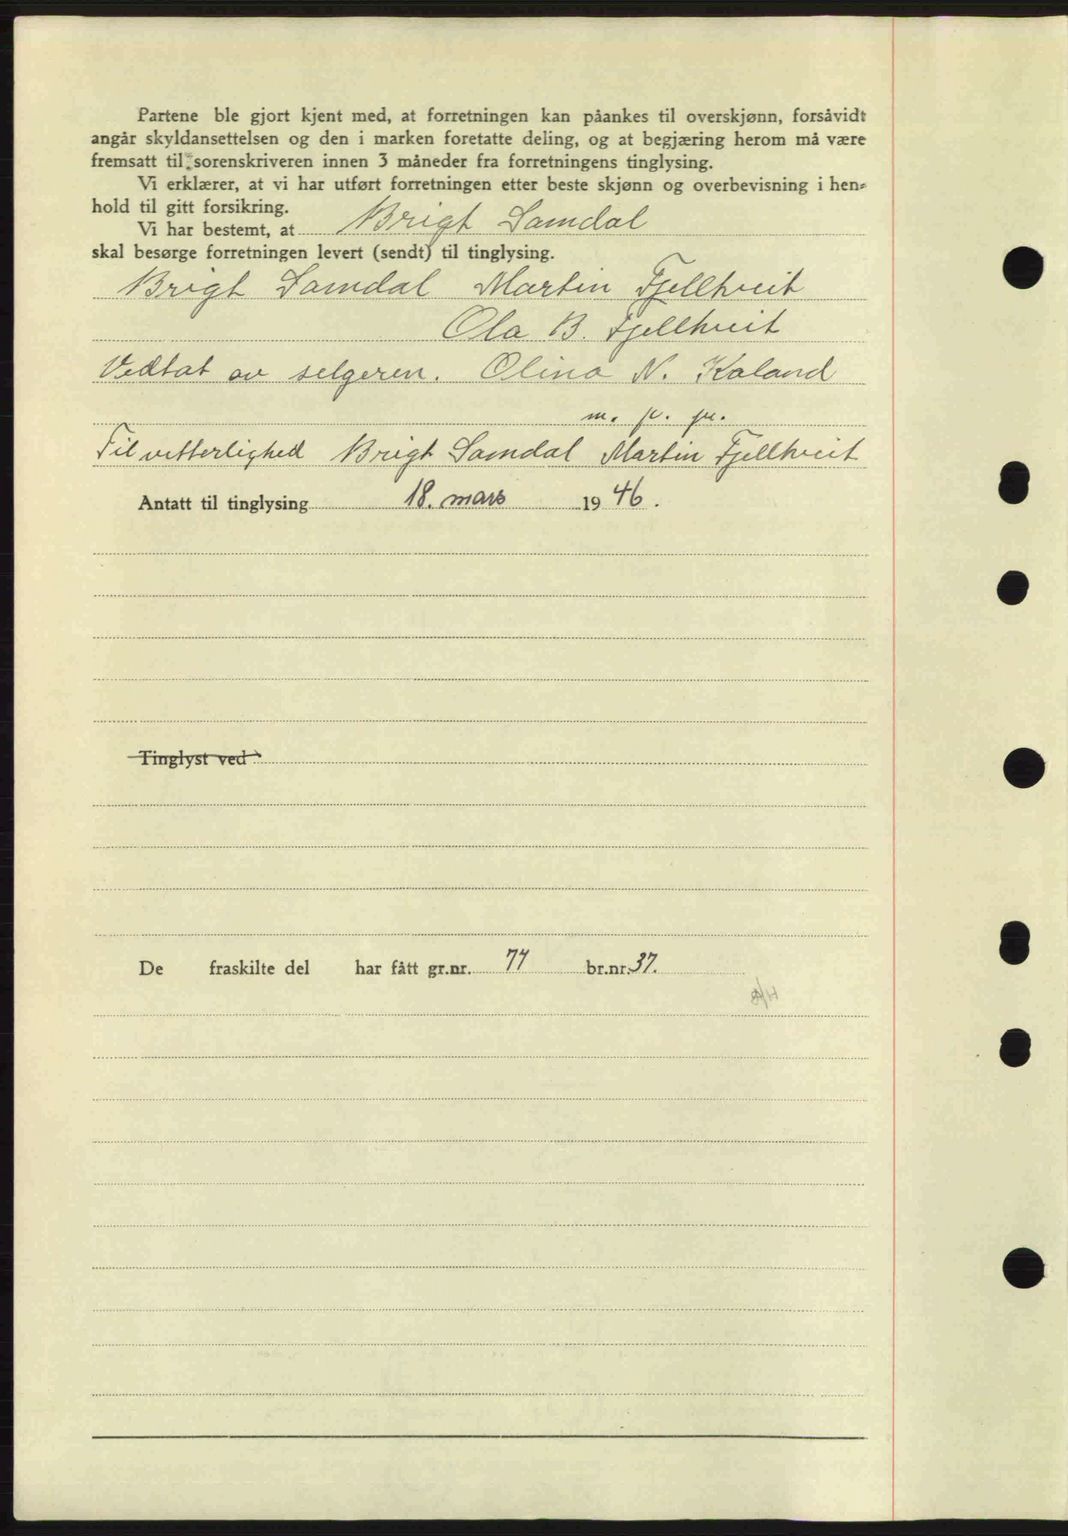 Partene ble gjort kjent med, at forretningen kan påankes til overskjønn, forsåvidt
angår skyldansettelsen og den i marken foretatte deling, og at begjæring herom må være
fremsatt til sorenskriveren innen 3 måneder fra forretningens tinglysing.
Vi erklærer, at vi har utført forretningen etter beste skjønn og overbevisning i hen-
hold til gitt forsikring.
Vi har bestemt, at Brigt Samdal
skal besørge forretningen levert (sendt) til tinglysing.
Brigt Samdal Martin Fjellhveit
Ola B. Fjellhveit
Vedtat av selgeren. Olina N. Kaland
m. p. p.
Til vitterlighed Brigt Samdal Martin Fjellhveit
Antatt til tinglysing 18. mars 1946.
Tinglyst ved
De fraskilte del har fått gr.nr. 77 br.nr. 37.